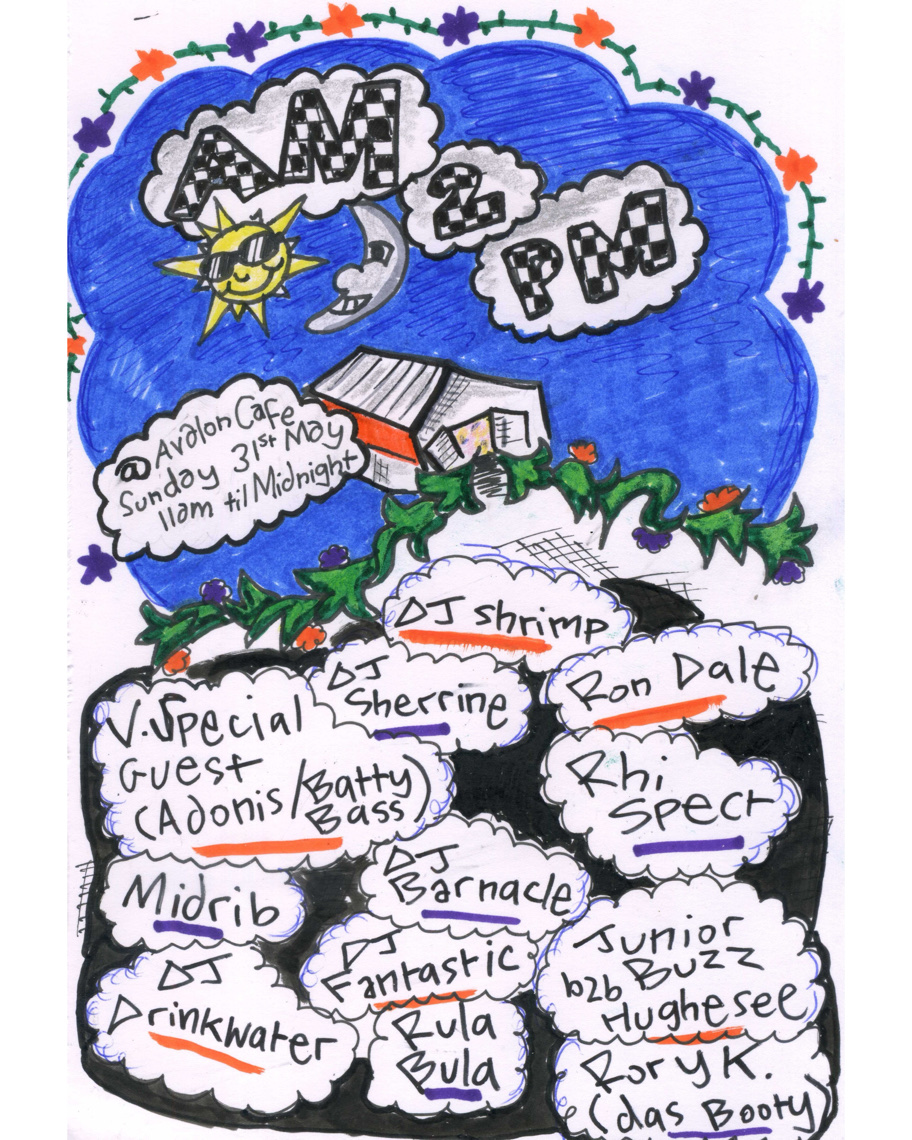 AM
2
PM
@ Avalon Cafe
Sunday 31st May
11am til Midnight
DJ shrimp
DJ
Sherrine
Ron Dale
V. Special
Guest
(Adonis/Batty
Bass)
Rhi
Spect
DJ
Barnacle
Midrib
DJ
Fantastic
Junior
b2b Buzz
Hughesee
DJ
Drinkwater
Rula
Bula
Rory K.
(das Booty)